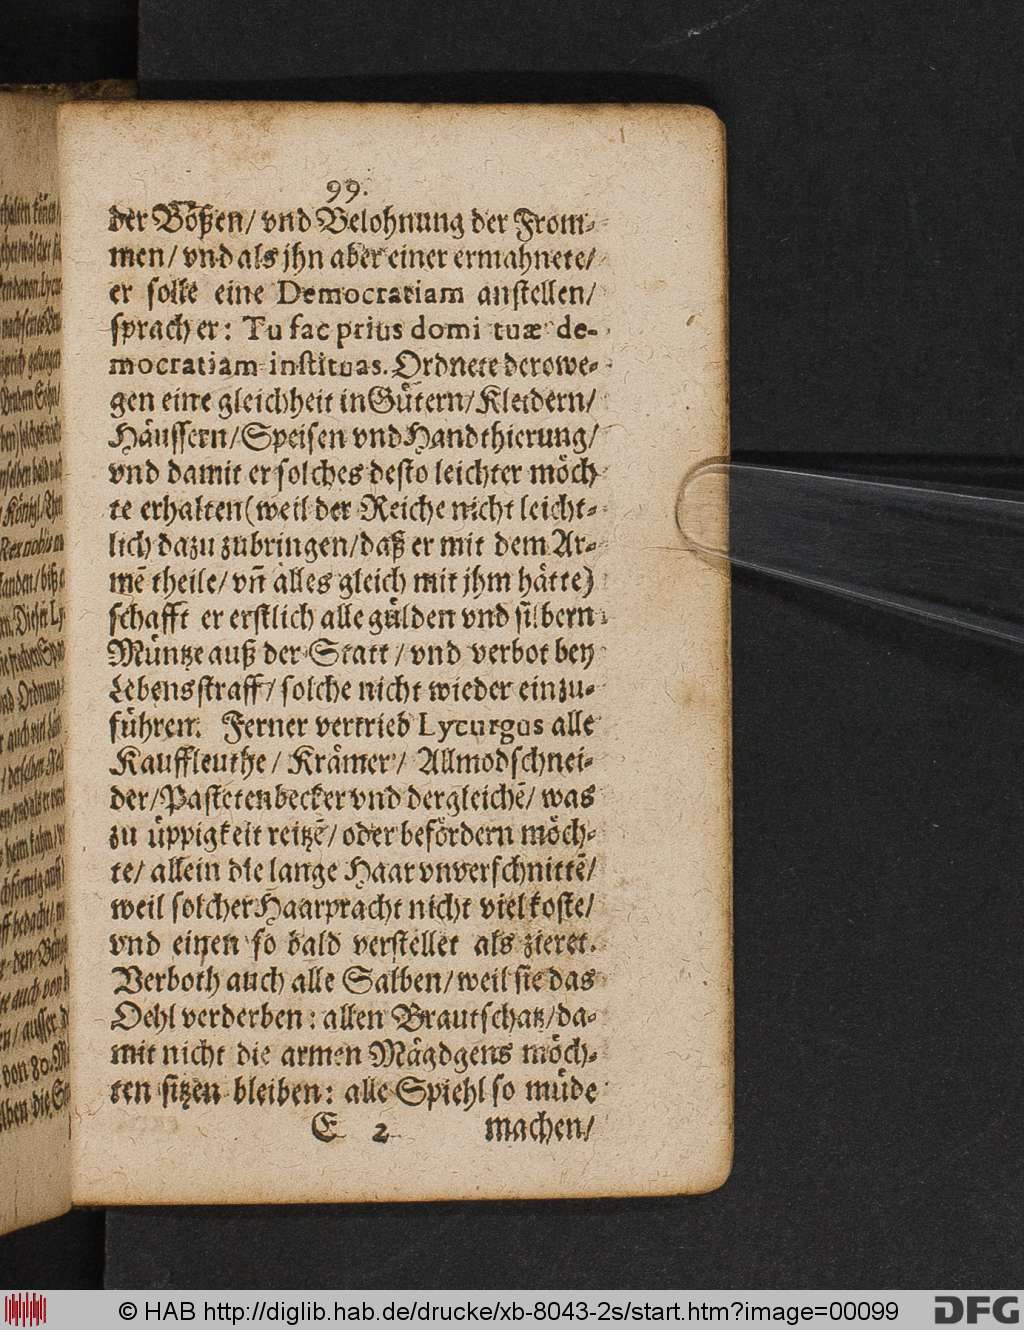 99.
der Bößen/ vnd Belohnung der From-
men/ vnd als jhn aber einer ermahnete/
er solle eine Democratiam anstellen/
sprach er: Tu fac prius domi tuæ de-
mocratiam instituas. Ordnete derowe-
gen eine gleichheit in Gütern/ Kleidern/
Häussern/ Speisen vnd Handthierung/
vnd damit er solches desto leichter möch
te erhalten (weil der Reiche nicht leicht-
lich dazu zubringen/ daß er mit dem Ar-
mẽ theile/ vñ alles gleich mit jhm hätte)
schafft er erstlich alle gülden vnd silbern
Müntze auß der Statt / vnd verbot bey
Lebensstraff/ solche nicht wieder einzu-
führen. Ferner vertrieb Lycurgus alle
Kauffleuthe / Krämer/ Allmodschnei-
der/ Pastetenbecker vnd dergleichẽ/ was
zu üppigkeit reitzẽ/ oder befördern möch-
te/ allein die lange Haar vnverschnittẽ/
weil solcher Haarpracht nicht viel koste/
vnd einen so bald verstellet als zieret.
Verboth auch alle Salben/ weil sie das
Oehl verderben : allen Brautschatz/ da-
mit nicht die armen Mägdgens möch-
ten sitzen bleiben : alle Spiehl so müde
E 2 machen/
© HAB http://diglib.hab.de/drucke/xb-8043-2s/start.htm?image=00099
DFG